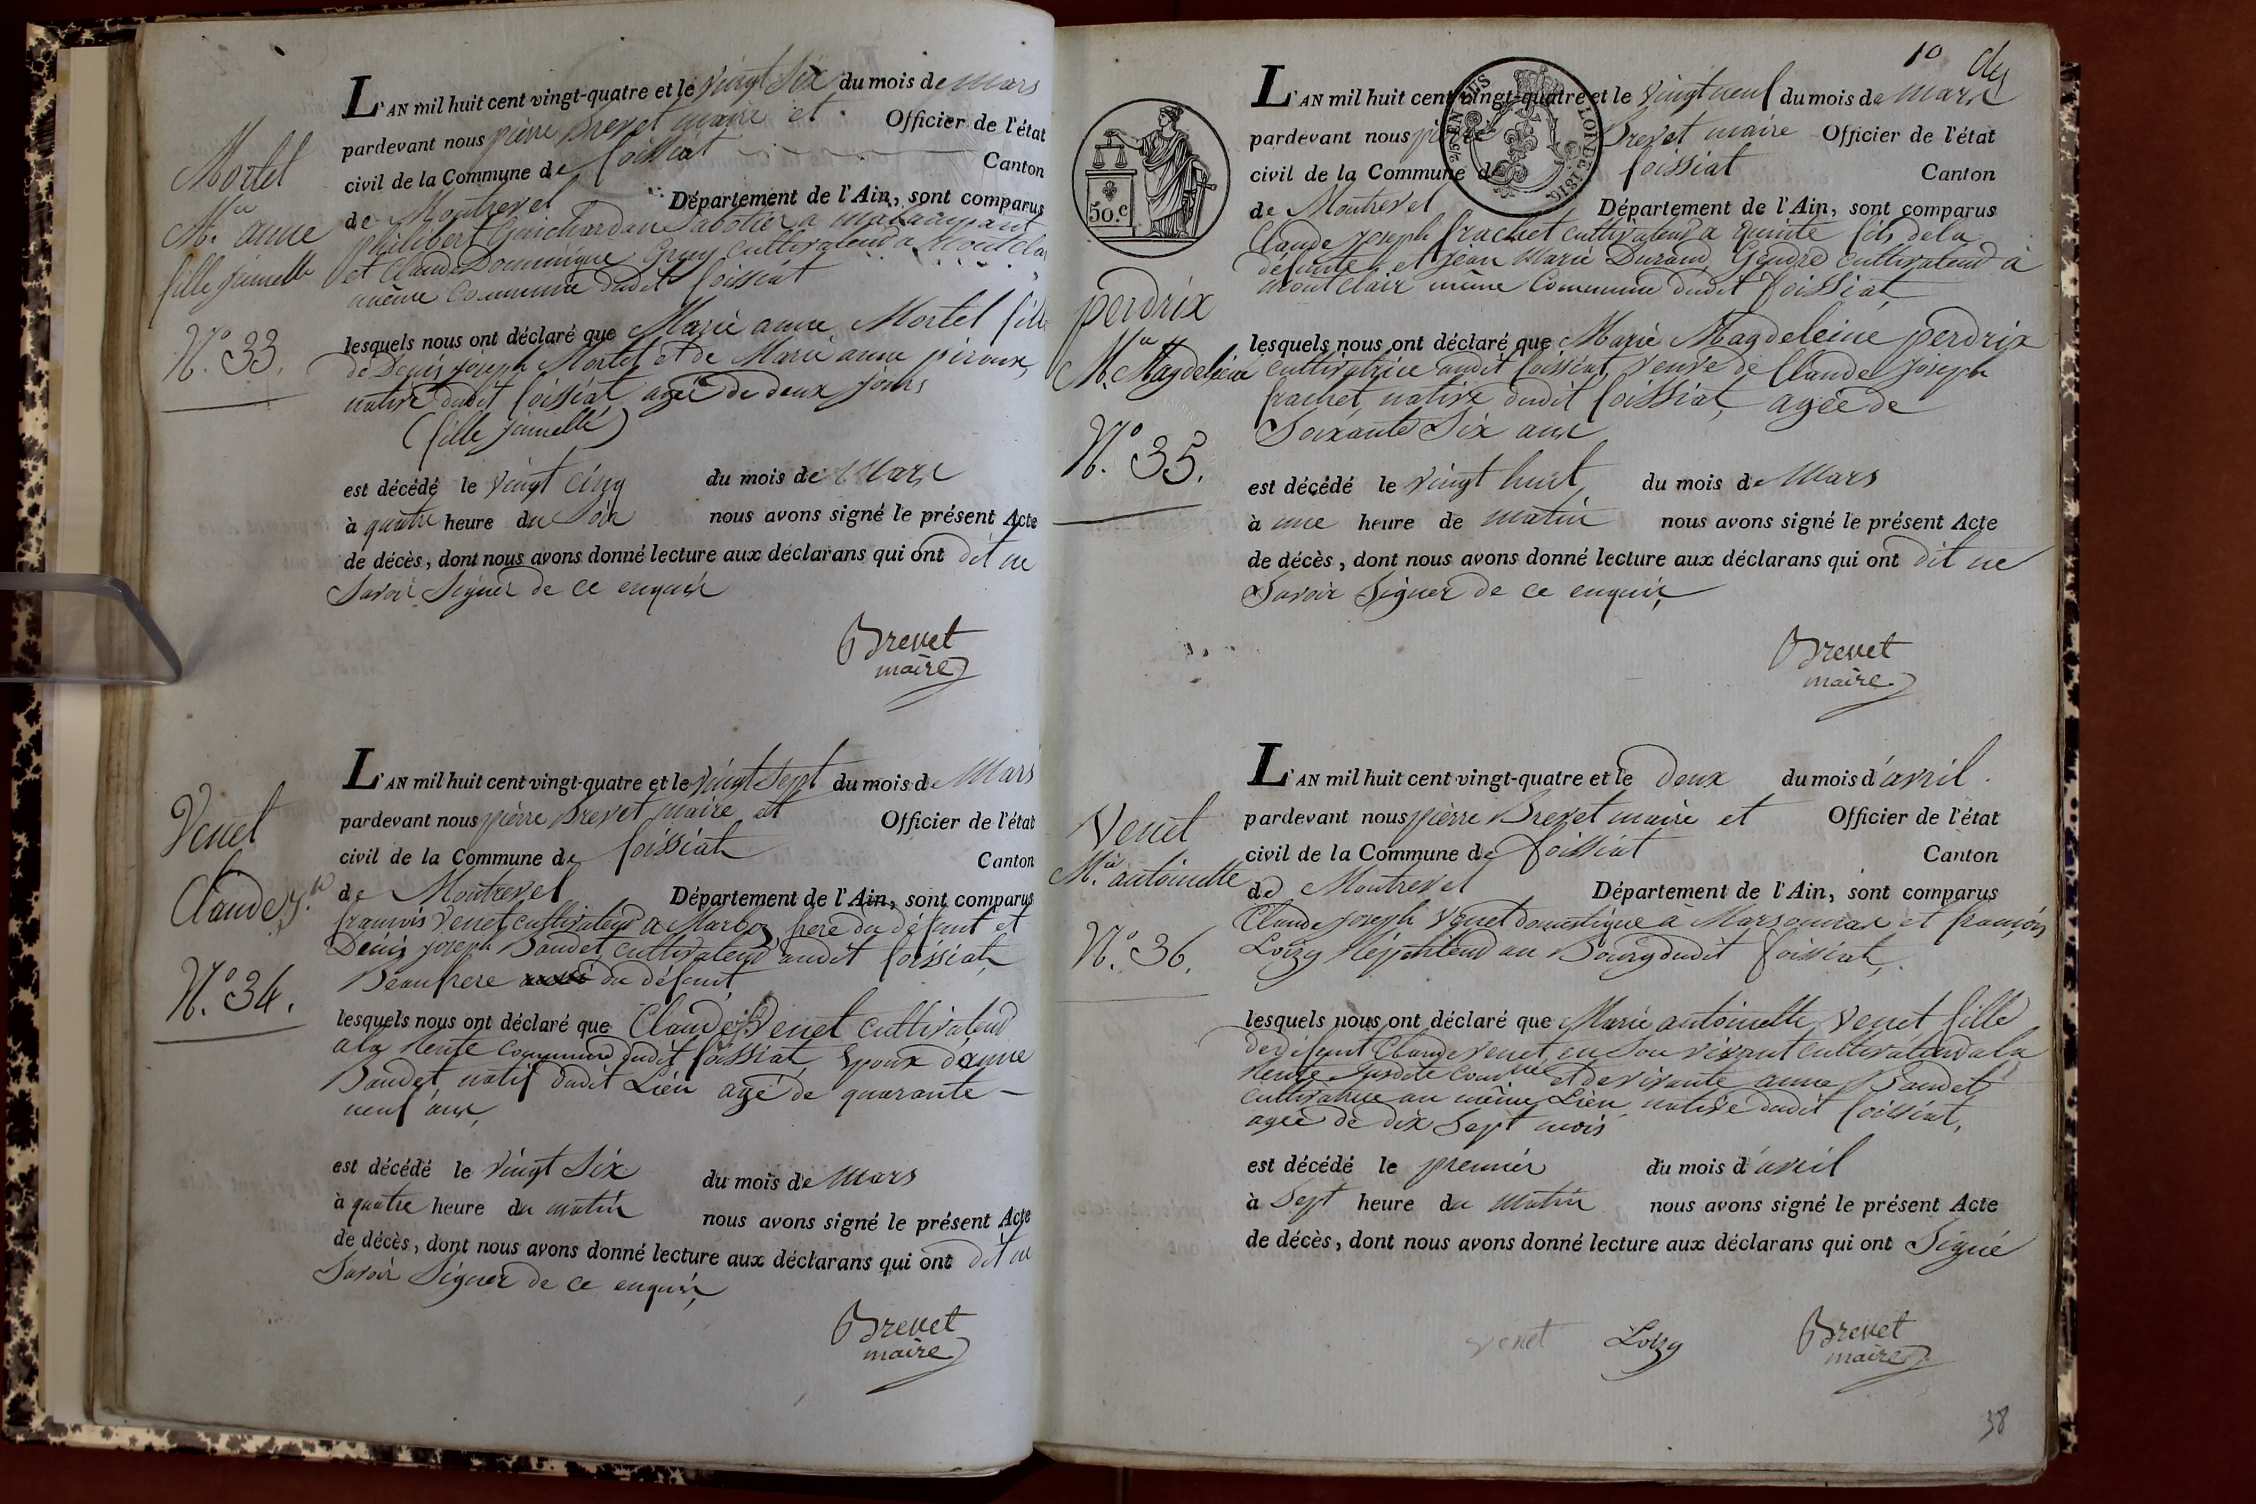 Mortel
M.ie anne
fille jumelle
N.° 33.
L'AN mil huit cent vingt-quatre et le vingt Six du mois de mars
pardevant nous pierre Brevet maire et Officier de l'état
civil de la Commune de foissiat Canton
de Montrevel Département de l'Ain, sont comparus
philibert Guichardan Sabotier a
et Claude Dominique Gruy Cultivateur a Montclair
même Commune dudit foissiat
lesquels nous ont déclaré que Marie anne Mortel fille
de Denis joseph Mortel et de Marie anne piroux,
native dudit foissiat, agée de deux jours
(fille jumelle)
est décédé le vingt Cinq du mois de Mars
à quatre heure du Soir nous avons signé le présent Acte
de décès, dont nous avons donné lecture aux déclarans qui ont dit ne
Savoir Signer de ce enquis
Brevet
maire
Venet
Claude J.h
N.° 34.
L'AN mil huit cent vingt-quatre et le vingt Sept du mois de Mars
pardevant nous pierre Brevet maire et Officier de l'état
civil de la Commune de foissiat Canton
de Montrevel Département de l'Ain, sont comparus
françois Venet cultivateur a Marboz frere du défunt et
Denis joseph Baudet, Cultivateur audit foissiat,
Beaufrere du défunt
lesquels nous ont déclaré que Claude J.h Venet cultivateur
a la Vente Commune dudit foissiat, Epoux d'anne
Baudet, natif dudit Lieu agé de quarante
neuf ans,
est décédé le vingt Six du mois de Mars
à quatre heure du matin nous avons signé le présent Acte
de décès, dont nous avons donné lecture aux déclarans qui ont dit ne
Savoir Signer de ce enquis,
Brevet
maire
10
50.c
perdrix
M.ie Magdeleine
N.° 35.
L'AN mil huit cent vingt-quatre et le vingt neuf du mois de Mars
pardevant nous Brevet maire Officier de l'état
civil de la Commune de foissiat Canton
de Montrevel Département de l'Ain, sont comparus
Claude joseph frachet cultivateur a quinte fils de la
défunte et jean Marie Durand Gendre cultivateur à
Montclair même Commune dudit foissiat,
lesquels nous ont déclaré que Marie Magdeleine perdrix
cultivatrice audit foissiat, veuve de Claude joseph
frachet, native dudit foissiat, agée de
Soixante Six ans
est décédé le vingt huit du mois de Mars
à une heure de matin nous avons signé le présent Acte
de décès, dont nous avons donné lecture aux déclarans qui ont dit ne
Savoir Signer de ce enquis,
Brevet
maire
Venet
M.ie antoinette
N.° 36.
L'AN mil huit cent vingt-quatre et le Deux du mois d'avril
pardevant nous pierre Brevet maire et Officier de l'état
civil de la Commune de foissiat Canton
de Montrevel Département de l'Ain, sont comparus
Claude joseph Venet domestique à Marsonnax et françois
Loizy Répétiteur au Bourg dudit foissiat,
lesquels nous ont déclaré que Marie antoinette Venet fille
de défunt Claude venet, en Son vivant cultivateur a la
Vente Susdite comm.ne et de vivante anne Baudet
cultivatrice au même Lieu, native dudit foissiat,
agée de dix Sept mois
est décédé le premier du mois d'avril
à Sept heure du Matin nous avons signé le présent Acte
de décès, dont nous avons donné lecture aux déclarans qui ont Signé
venet Loizy Brevet
maire
38